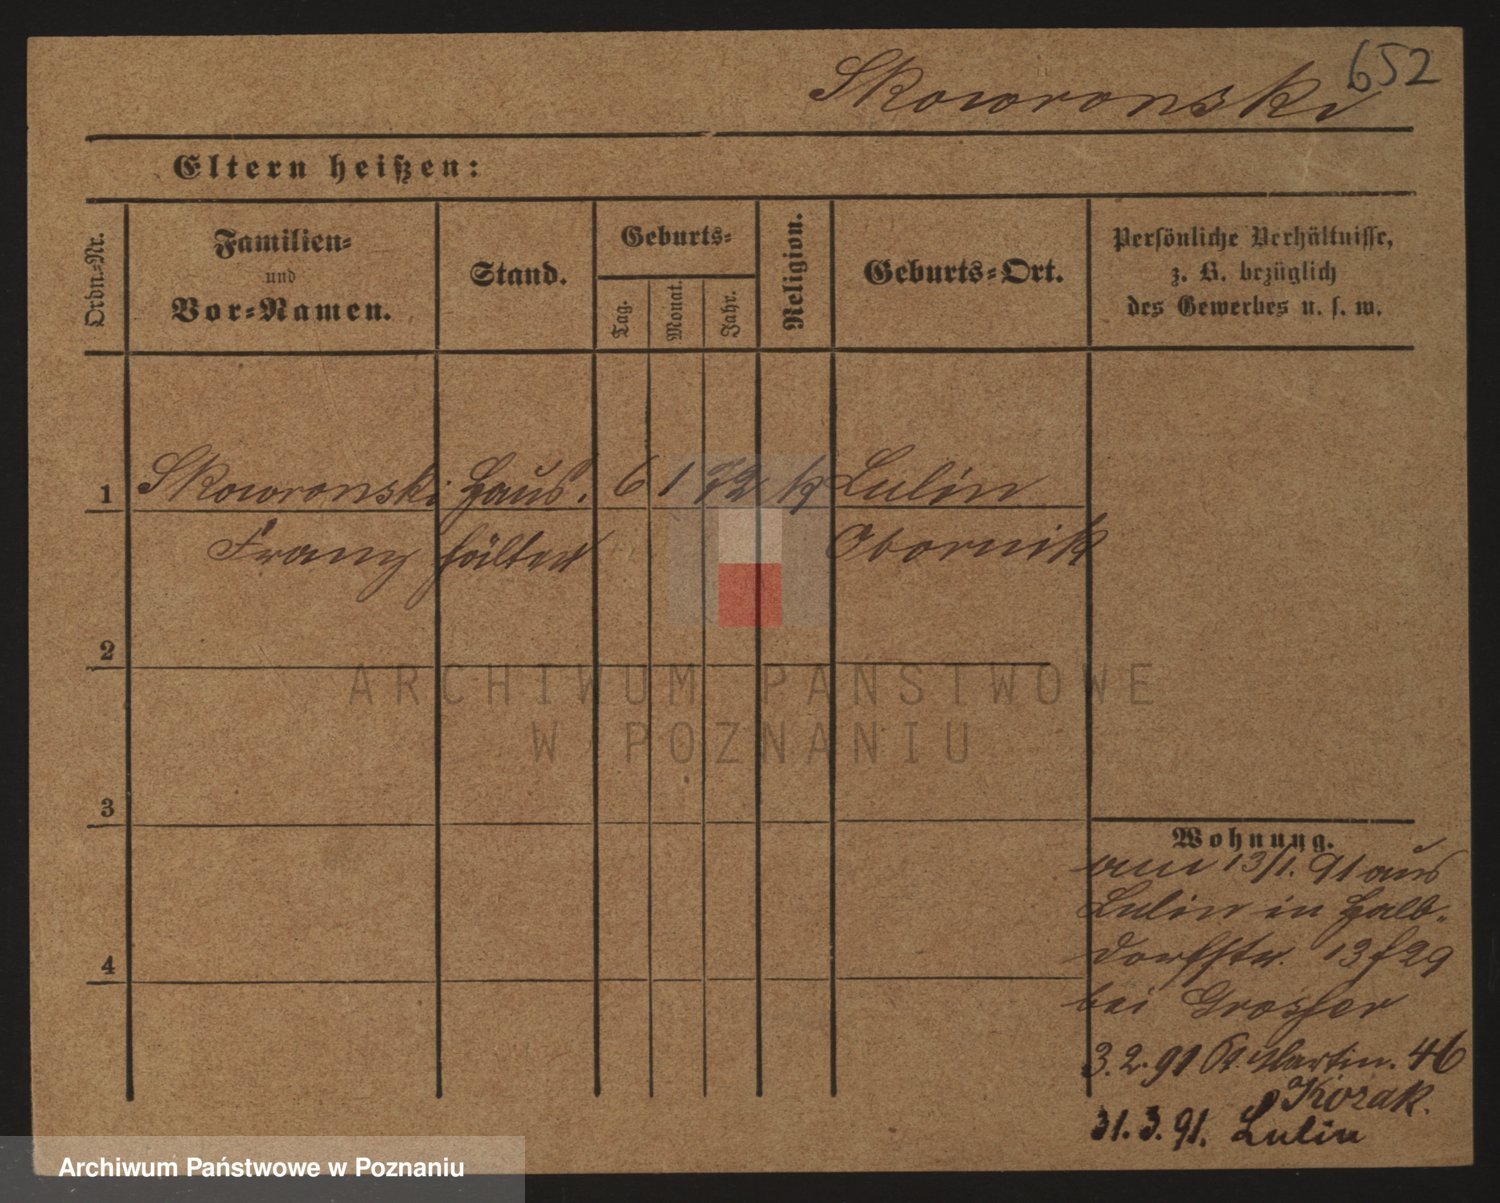 652
Skowronski
Eltern heißen:
Ordn.-Nr.
Familien-
und
Vor-Namen.
Stand.
Geburts-
Tag.
Monat.
Jahr.
Religion.
Geburts-Ort.
Persönliche Verhältnisse,
z. B. bezüglich
des Gewerbes u. s. w.
1 Skowronski Haus. 6 1 72 k Lulin
Franz hälter Obornik
2
3
4
Wohnung.
am 13/1. 91 aus
Lulin in Halb-
dorfstr. 13 f 29
bei
3.2.91 St. Martin. 46
Kozak.
31.3.91. Lulin
ARCHIWUM PAŃSTWOWE
W POZNANIU
Archiwum Państwowe w Poznaniu